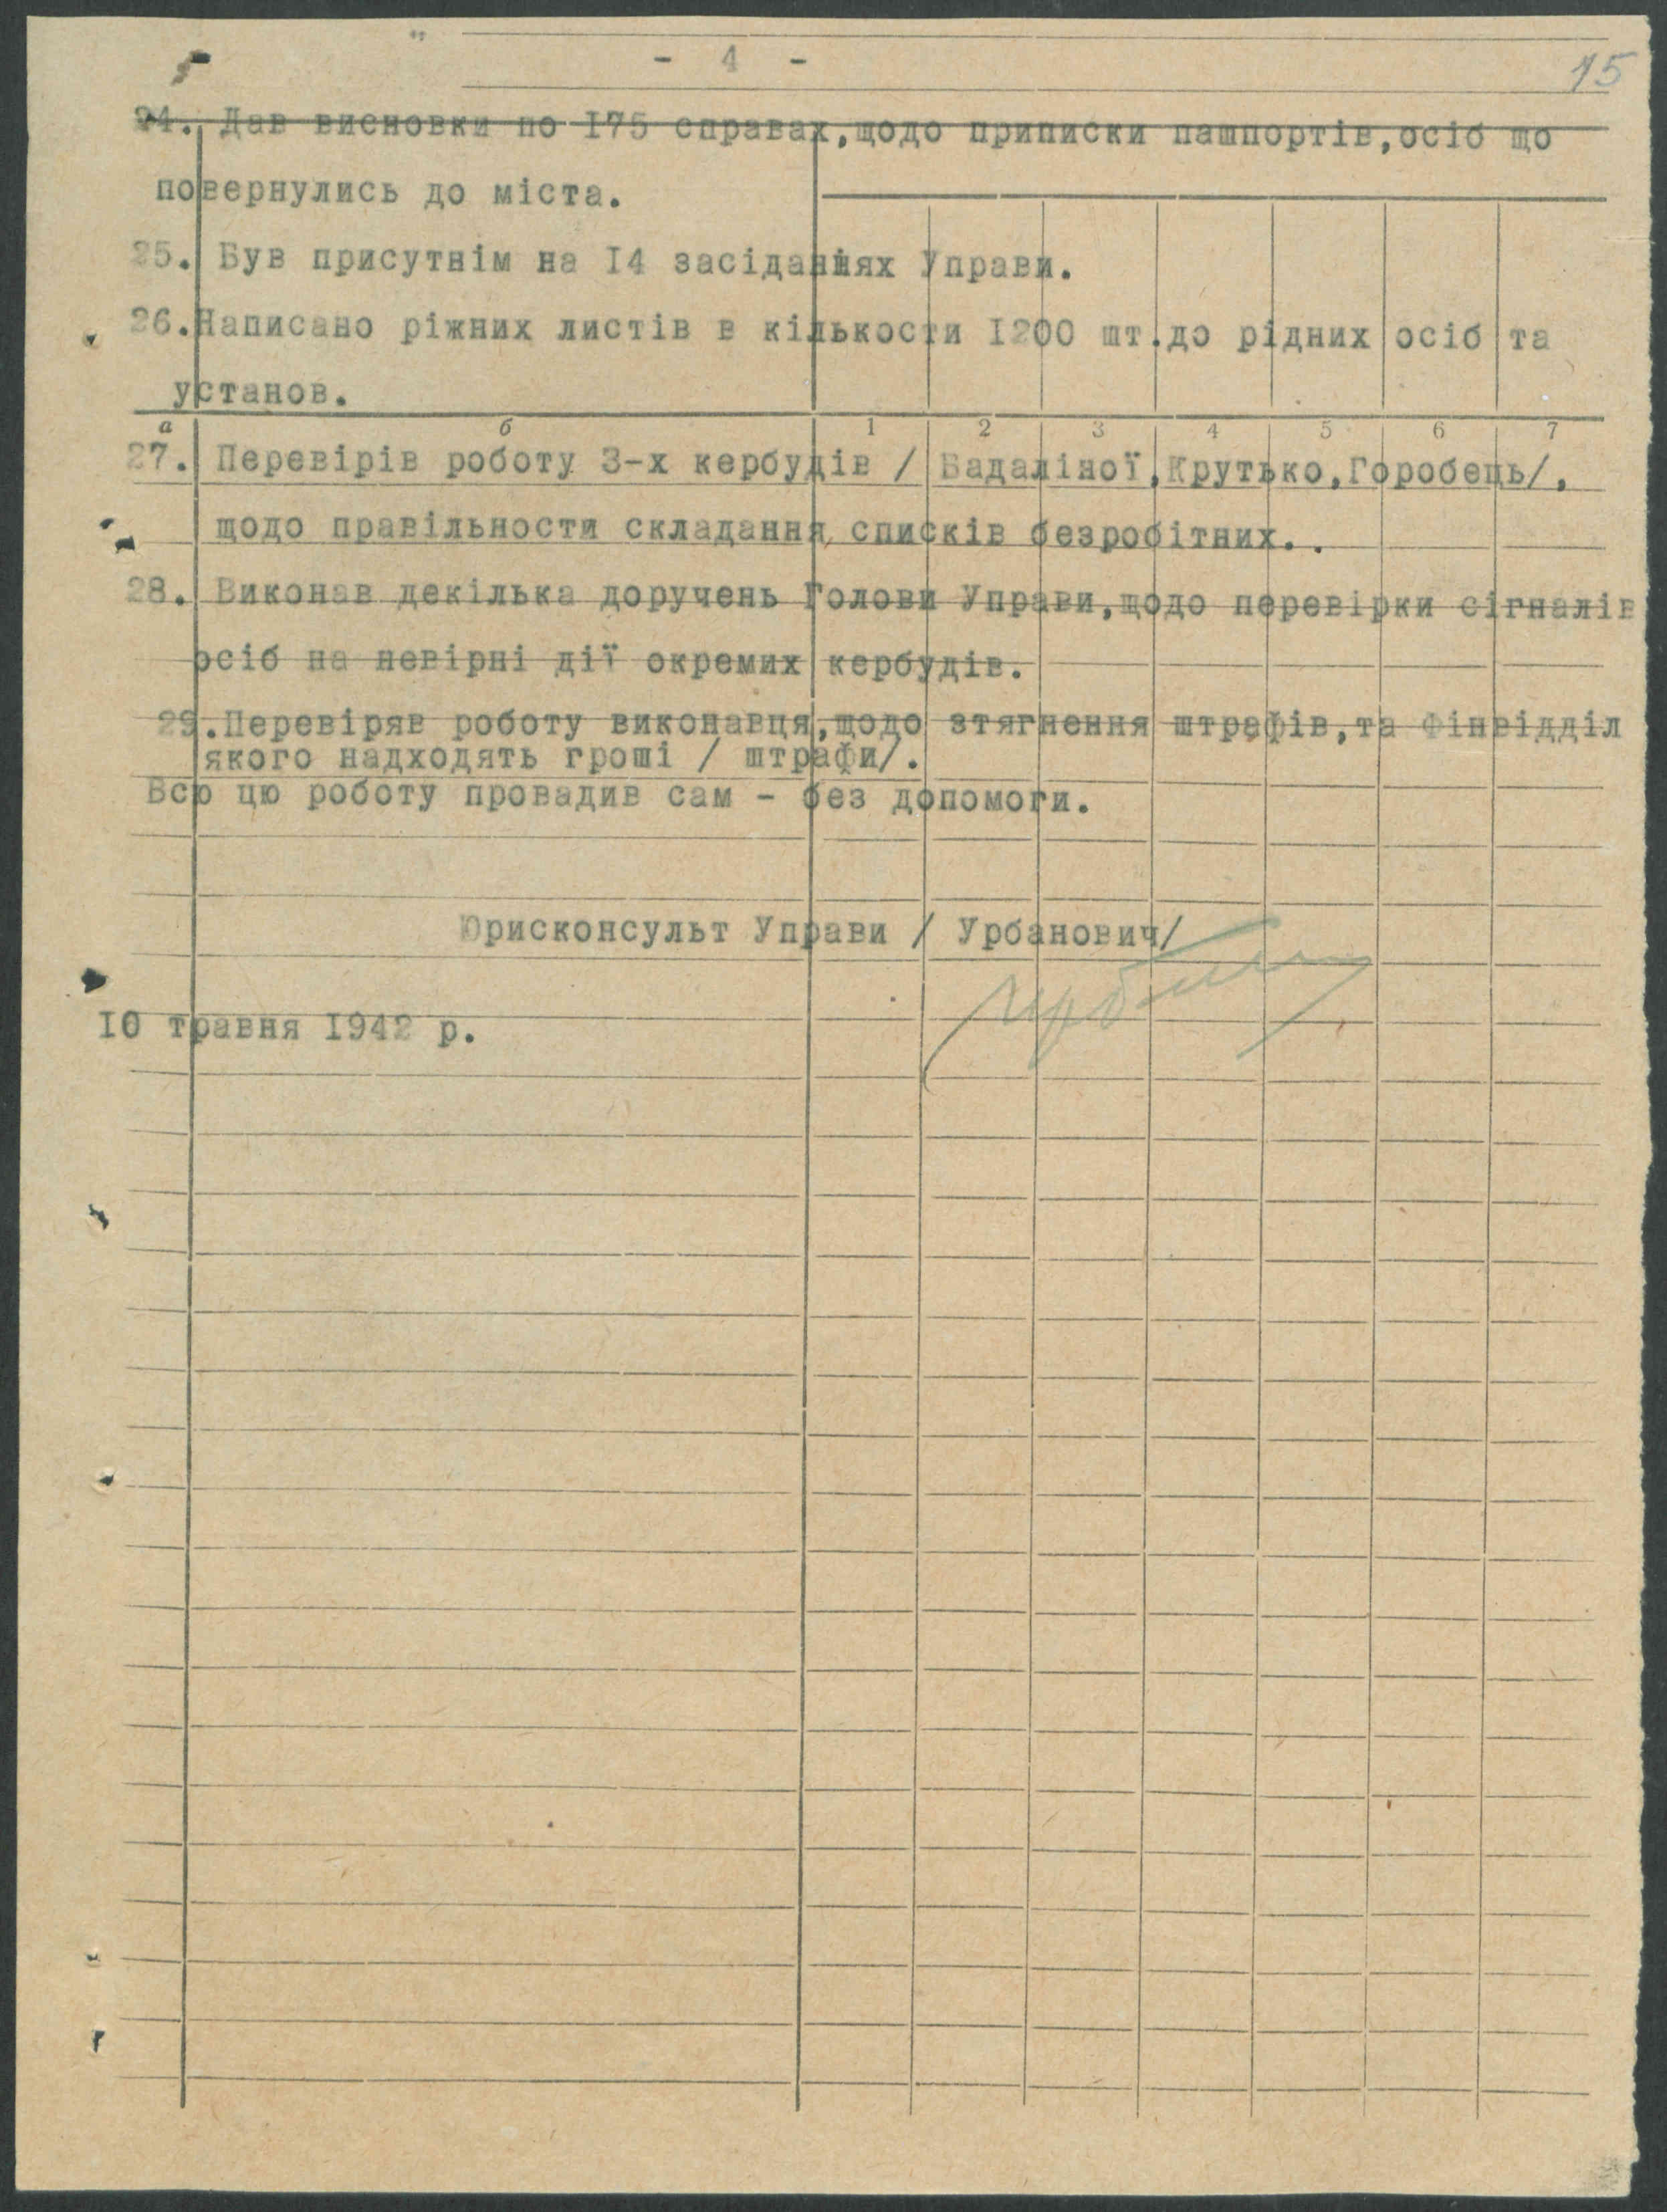 - 4 -
15
24. Дав висновки по I75 справах,щодо приписки пашпортів,осіб що
повернулись до міста.
25. Був присутнім на I4 засіданнях Управи.
26.Написано ріжних листів в кількости I200 шт.до рідних осіб та
установ.
а б 1 2 3 4 5 6 7
27. Перевірів роботу 3-х кербудів / Бадаліної,Крутько,Горобець/,
щодо правільности складання списків безробітних. .
28. Виконав декілька доручень Голови Управи,щодо перевірки сігналів
осіб на невірні дії окремих кербудів.
29.Перевіряв роботу виконавця,щодо зтягнення штрафів,та Фінвідділ
якого надходять гроші / штрафи/.
Всю цю роботу провадив сам - без допомоги.
Юрисконсульт Управи / Урбанович/
I0 травня I942 р.